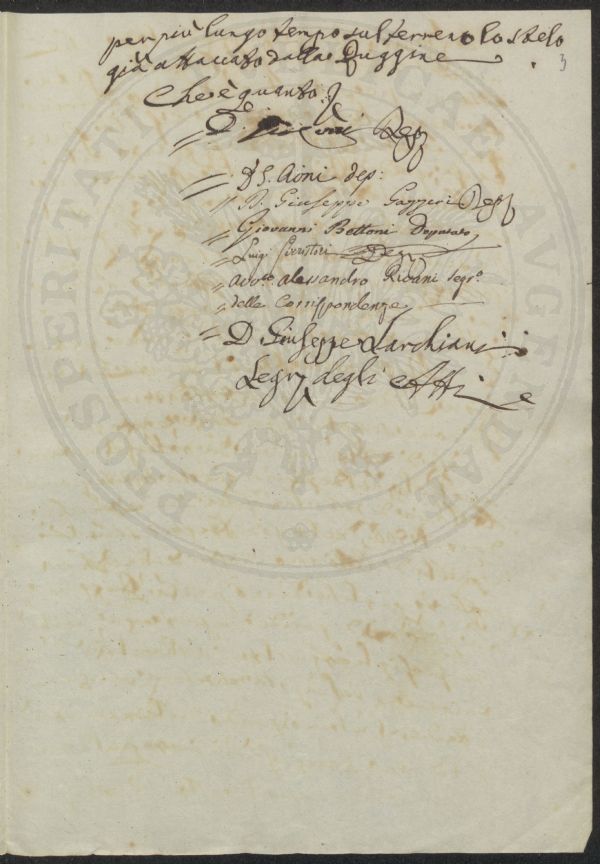 per più lungo tempo sul terreno lo stelo
già attaccato dalla Ruggine
3
Che è quanto
D.
D. S. Aioni dep:
D. Giuseppe Gazzeri Dep
Giovanni Bettoni Deputato
Luigi Dep
Avvo. Alessandro Rivani Segr.o
delle Corrispondenze
D. Giuseppe Sarchiani
Segr degli Atti
PROSPERITATI PUBLICAE AUGENDAE